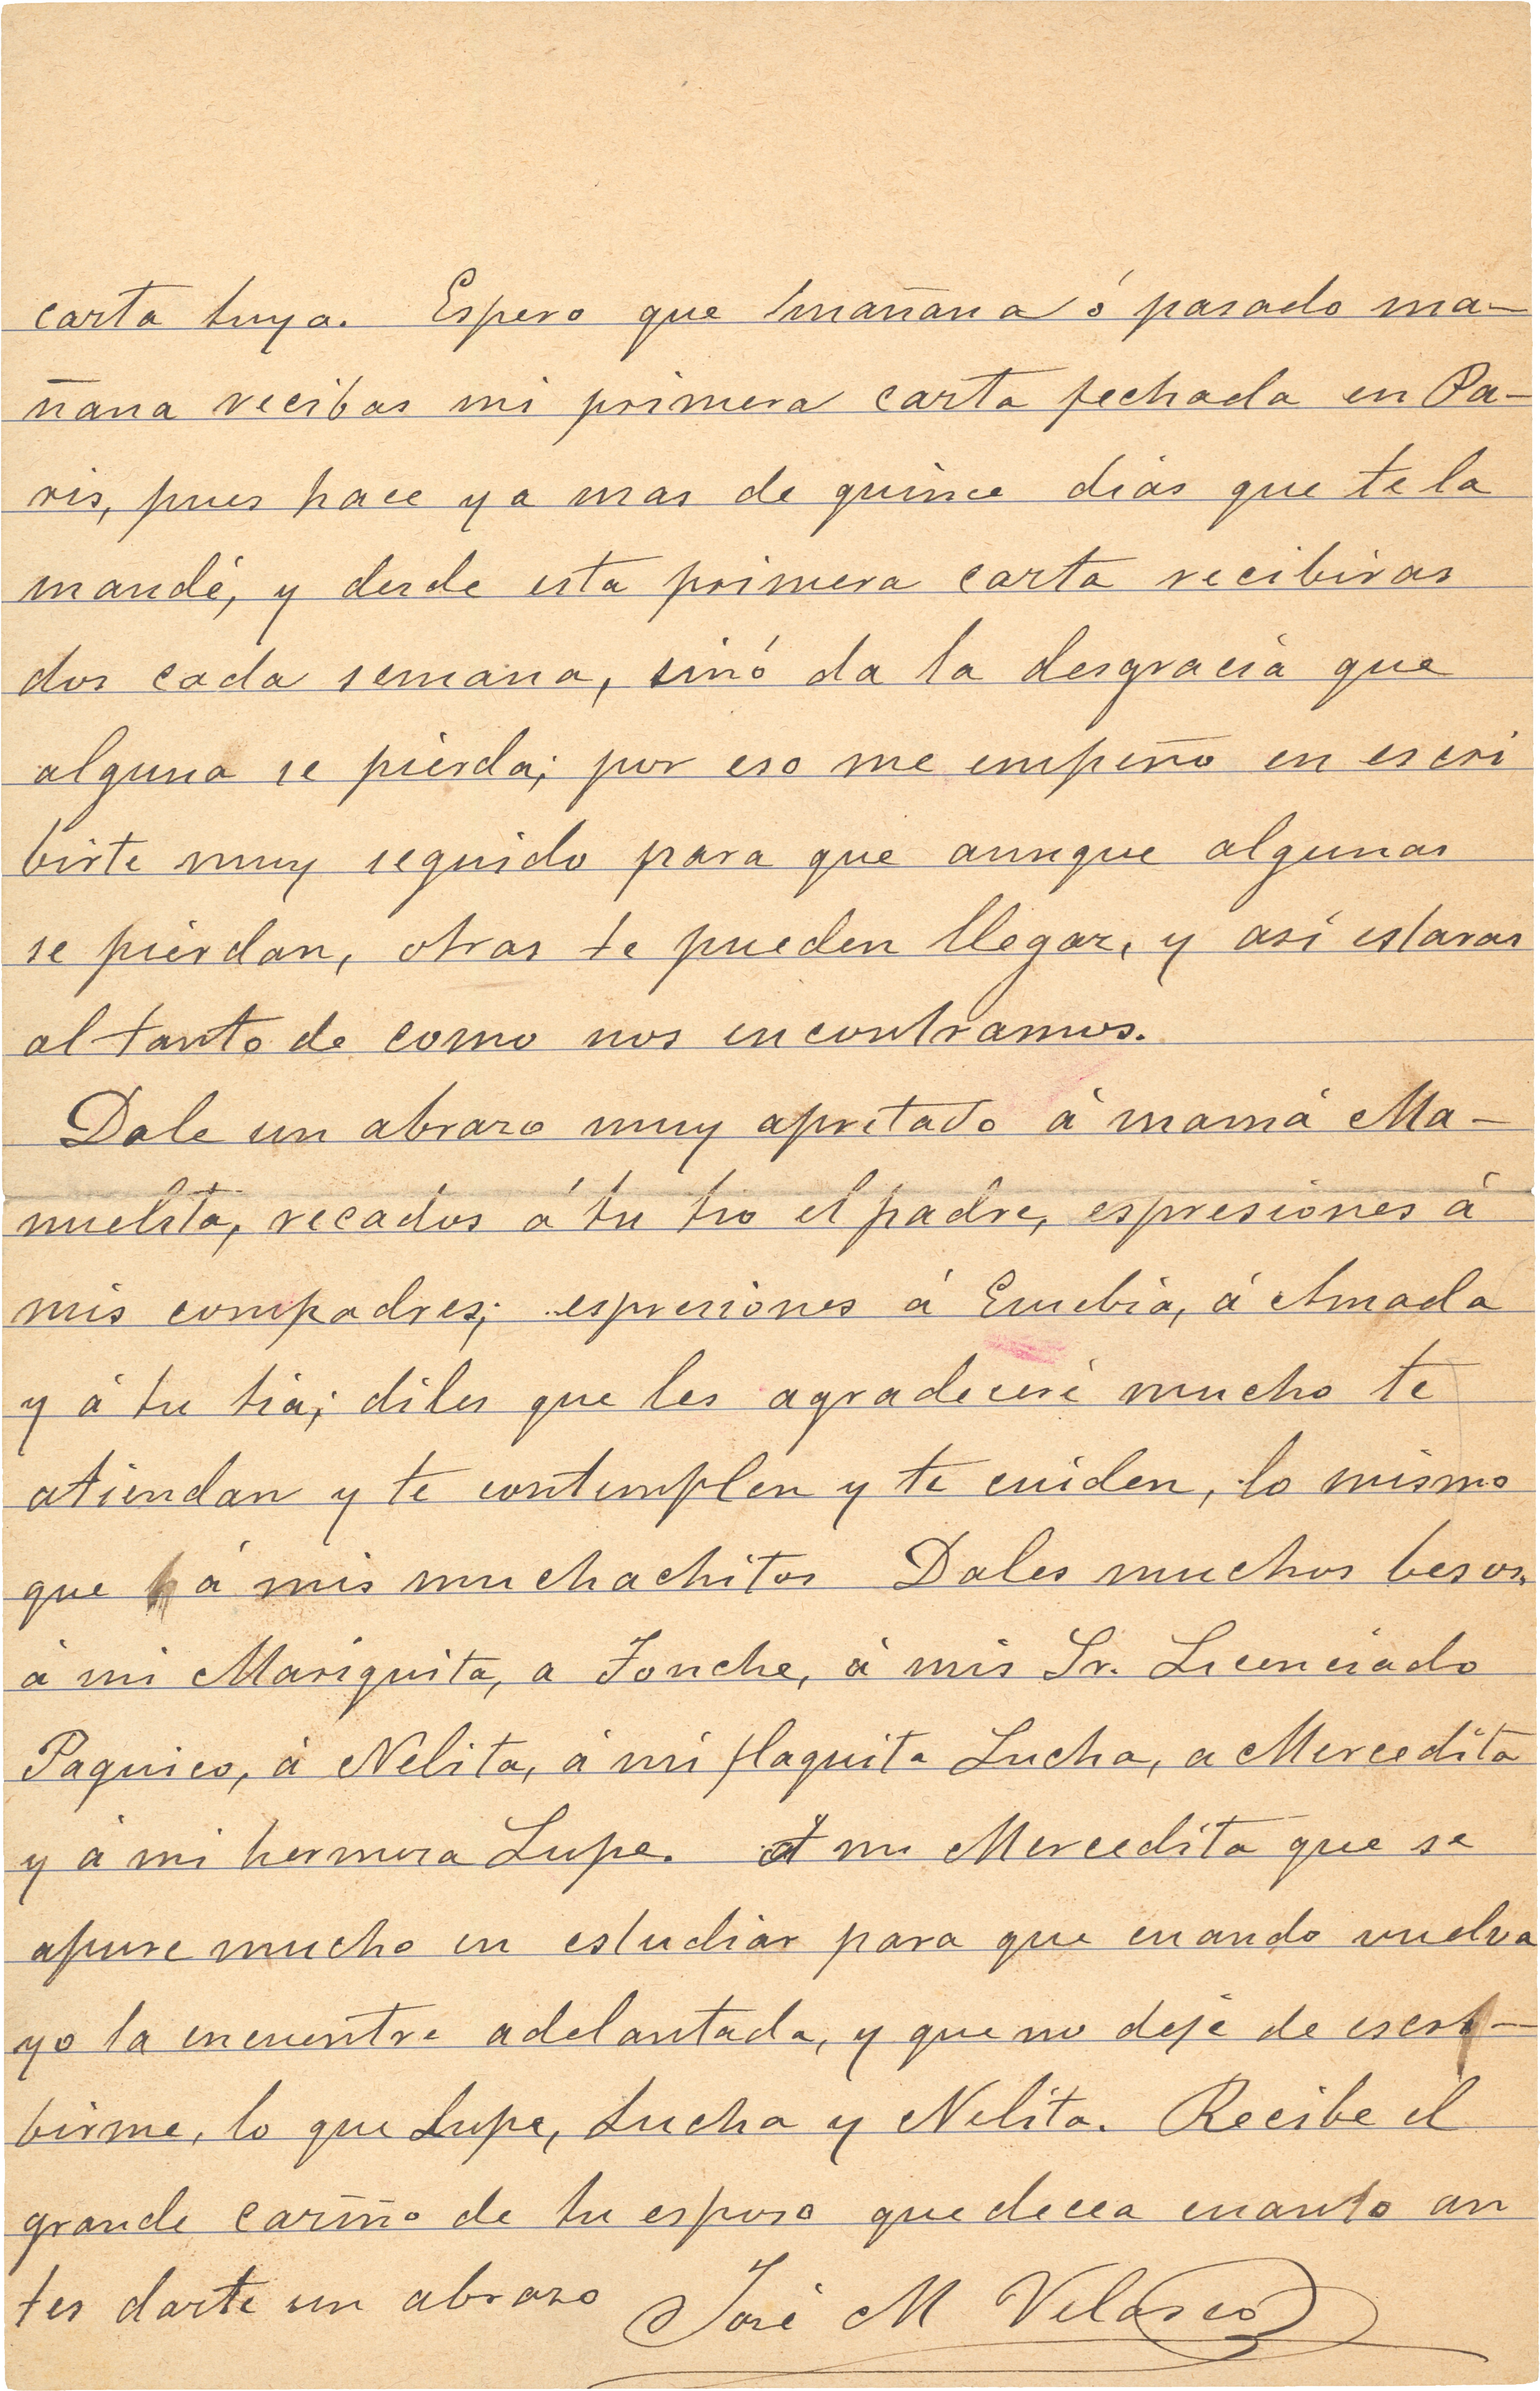 carta tuya. Espero que mañana ó pasado ma-
ñana recibas mi primera carta fechada en Pa-
ris, pues hace ya mas de quince dias que te la
mandé, y desde esta primera carta recibiras
dos cada semana, sinó da la desgracia que
alguna se pierda; por eso me empeño en escri
birte muy seguido para que aunque algunas
se pierdan, otras te pueden llegar, y así estaras
al tanto de como nos encontramos.
Dale un abrazo muy apretado á mamá Ma-
nuelita, recados á tu tio el padre, espresiones á
mis compadres; espresiones á Eusebia, á Amada
y á tu tia; diles que les agradeceré mucho te
atiendan y te contemplen y te cuiden, lo mismo
que á mis muchachitos Dales muchos besos,
á mi Mariquita, a Fonche, á mis Sr. Licenciado
Paquico, á Nelita, á mi flaquita Lucha, a Mercedita
y á mi hermosa Lupe. A mi Mercedita que se
apure mucho en estudiar para que cuando vuelva
yo la encuentre adelantada, y que no deje de escri-
birme, lo que Lupe, Lucha y Nelita. Recibe el
grande cariño de tu esposo que decea cuanto an
tes darte un abrazo José M Velasco